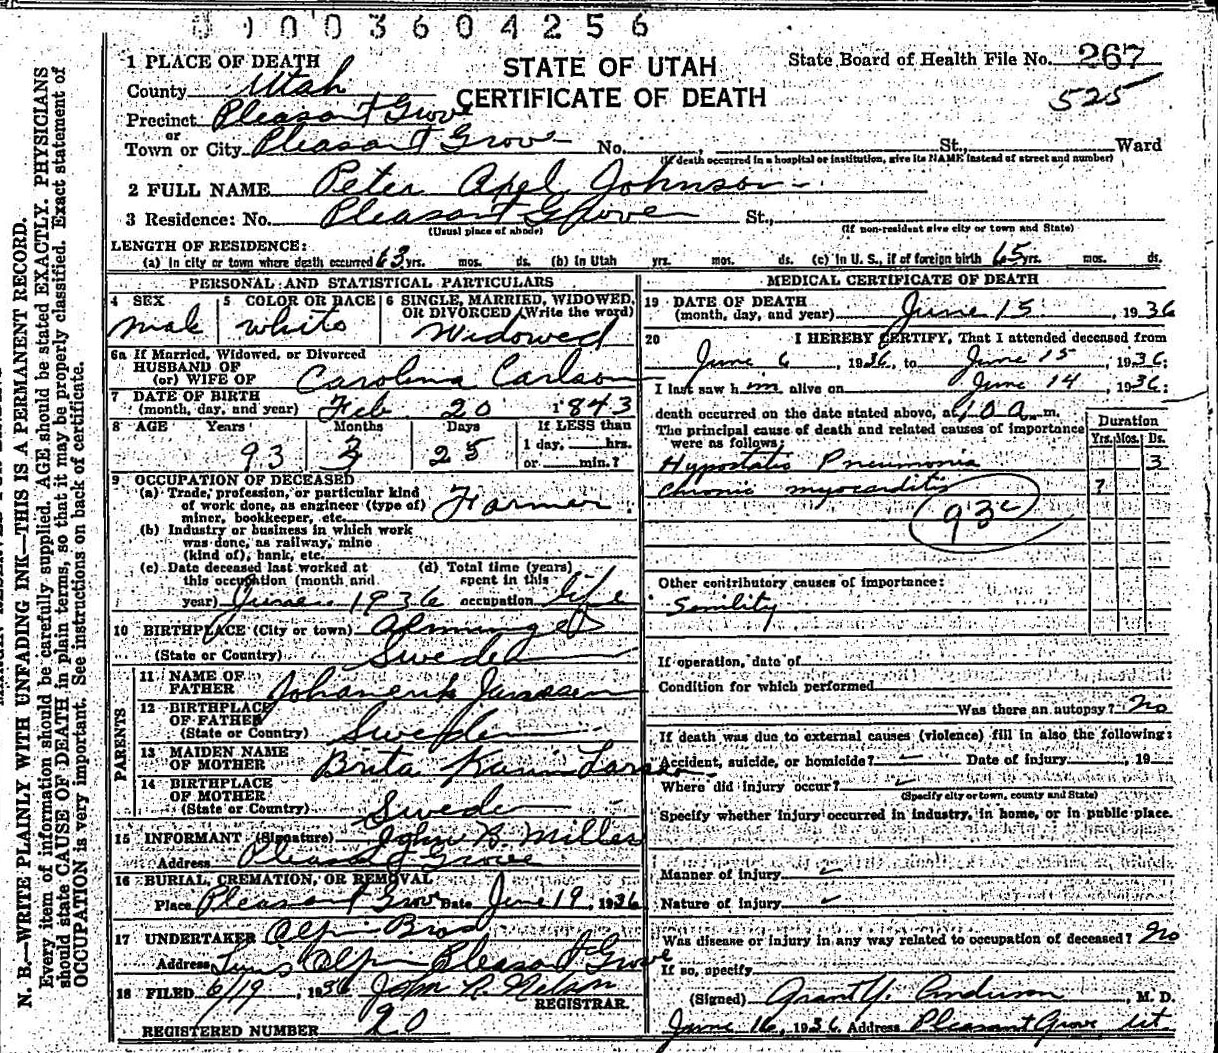 01003604256
1 PLACE OF DEATH
STATE OF UTAH
CERTIFICATE OF DEATH
State Board of Health File No. 267
525
County Utah
Precinct Pleasant Grove
or
Town or City Pleasant Grove No. , St., Ward
(If death occurred in a hospital or institution, give its NAME instead of street and number)
2 FULL NAME Peter Axel Johnson
3 Residence: No. Pleasant Grove St.,
(Usual place of abode) (If non-resident give city or town and State)
LENGTH OF RESIDENCE:
(a) In city or town where death occurred 63 yrs. mos. ds. (b) In Utah yrs. mos. ds. (c) In U. S., if of foreign birth 65 yrs. mos. ds.
PERSONAL AND STATISTICAL PARTICULARS
4 SEX 5 COLOR OR RACE 6 SINGLE, MARRIED, WIDOWED, OR DIVORCED (Write the word)
Male White Widowed
6a If Married, Widowed, or Divorced
HUSBAND OF
(or) WIFE OF Carolina Carlson
7 DATE OF BIRTH
(month, day, and year) Feb. 20 1843
8 AGE Years Months Days If LESS than
1 day, hrs.
or min.?
93 3 25
9 OCCUPATION OF DECEASED
(a) Trade, profession, or particular kind
of work done, as engineer (type of)
miner, bookkeeper, etc. Farmer
(b) Industry or business in which work
was done, as railway, mine
(kind of), bank, etc.
(c) Date deceased last worked at
this occupation (month and
year) June 1936
(d) Total time (years)
spent in this
occupation life
10 BIRTHPLACE (City or town)
(State or Country) Sweden
PARENTS
11 NAME OF
FATHER Johanerik Janssen
12 BIRTHPLACE
OF FATHER
(State or Country) Sweden
13 MAIDEN NAME
OF MOTHER Brita Karin Larson
14 BIRTHPLACE
OF MOTHER
(State or Country) Sweden
15 INFORMANT (Signature) John B. Miller
Address Pleasant Grove
16 BURIAL, CREMATION, OR REMOVAL
Place Pleasant Grove Date June 19, 1936
17 UNDERTAKER Olpin Bros
Address Olpin Pleasant Grove
18 FILED 6/19, 1936 John R. Nelson
REGISTRAR.
REGISTERED NUMBER 20
MEDICAL CERTIFICATE OF DEATH
19 DATE OF DEATH
(month, day, and year) June 15, 1936
20 I HEREBY CERTIFY, That I attended deceased from
June 6, 1936, to June 15, 1936;
I last saw him alive on June 14, 1936;
death occurred on the date stated above, at 10 a. m.
The principal cause of death and related causes of importance
were as follows:
Duration
Yrs. Mos. Ds.
Hypostatic Pneumonia 3
Chronic myocarditis ?
93c
Other contributory causes of importance:
Senility
If operation, date of
Condition for which performed
Was there an autopsy? No
If death was due to external causes (violence) fill in also the following:
Accident, suicide, or homicide? Date of injury , 19
Where did injury occur?
(Specify city or town, county and State)
Specify whether injury occurred in industry, in home, or in public place.
Manner of injury
Nature of injury
Was disease or injury in any way related to occupation of deceased? No
If so, specify
(Signed) Grant Y. Anderson, M. D.
June 16, 1936 Address Pleasant Grove Ut
N. B.—WRITE PLAINLY WITH UNFADING INK—THIS IS A PERMANENT RECORD.
Every item of information should be carefully supplied. AGE should be stated EXACTLY. PHYSICIANS
should state CAUSE OF DEATH in plain terms, so that it may be properly classified. Exact statement of
OCCUPATION is very important. See instructions on back of certificate.